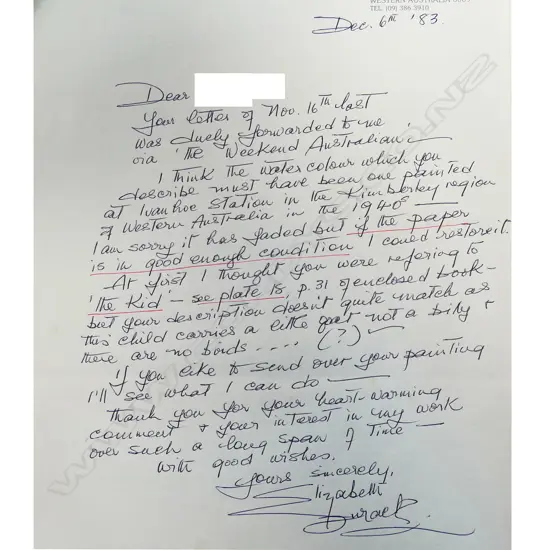 WESTERN AUSTRALIA
TEL (09) 386 3910
Dec. 6th '83.
Dear
Your letter of Nov. 16th last
was duely forwarded to me
via 'The Weekend Australian' —
I think the water colour which you
describe must have been one painted
at Ivanhoe Station in the Kimberley region
of Western Australia in the 1940s —
I am sorry it has faded but if the paper
is in good enough condition I could restore it.
At first I thought you were refering to
'The Kid' — see plate 15, p. 31 of enclosed book —
but your description doesn't quite match as
this child carries a little goat not a billy +
there are no birds .... (?) —
If you like to send over your painting
I'll see what I can do —
Thank you for your heart-warming
comment + your interest in my work
over such a long span of time —
with good wishes.
Yours sincerely,
Elizabeth
Durack.